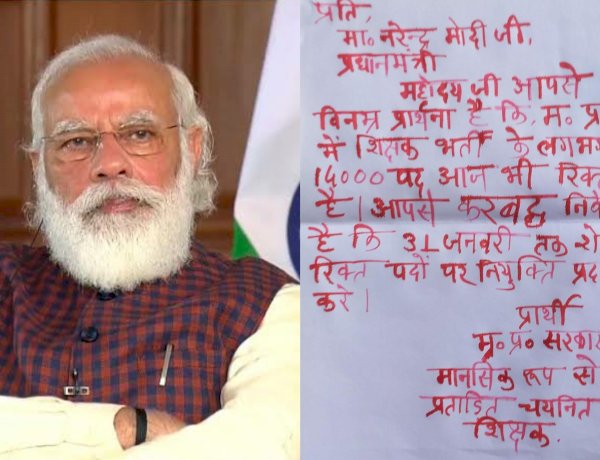 प्रति,
मा॰ नरेन्द्र मोदी जी,
प्रधानमंत्री
महोदय जी आपसे
विनम्र प्रार्थना है कि, म॰ प्र
में शिक्षक भर्ती के लगभग
15000 पद आज भी रिक्त
है। आपसे करबद्ध निवे
है कि 31 जनवरी तक शे
रिक्त पदों पर नियुक्ति प्रद
करे।
प्रार्थी
म॰ प्र॰ सरकार
मानसिक रूप से
प्रताडित चयनित
शिक्षक.